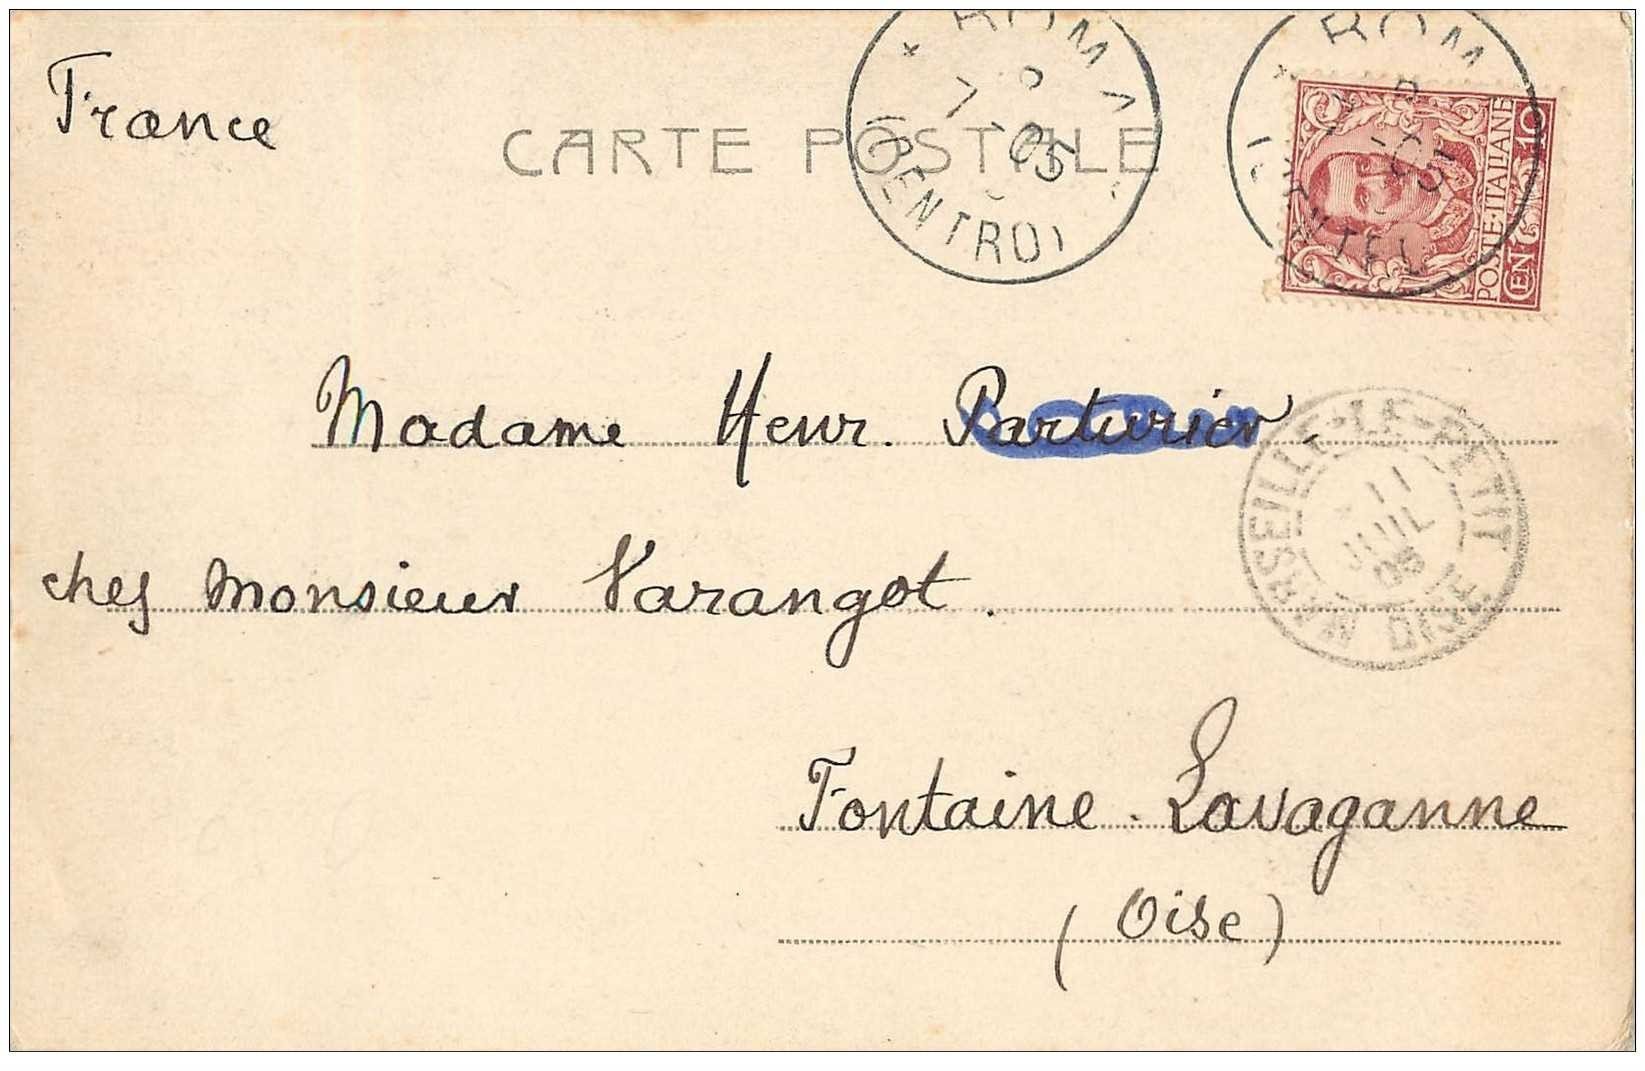 France
CARTE POSTALE
ROMA
7 05
(CENTRO)
ROM
POSTE·ITALIANE
CEN 10
Madame Henr. Parturier.
chez Monsieur Varangot.
MARSEILLE-LE-PETIT
11
JUIL
05
OISE
Fontaine. Lavaganne
(Oise)